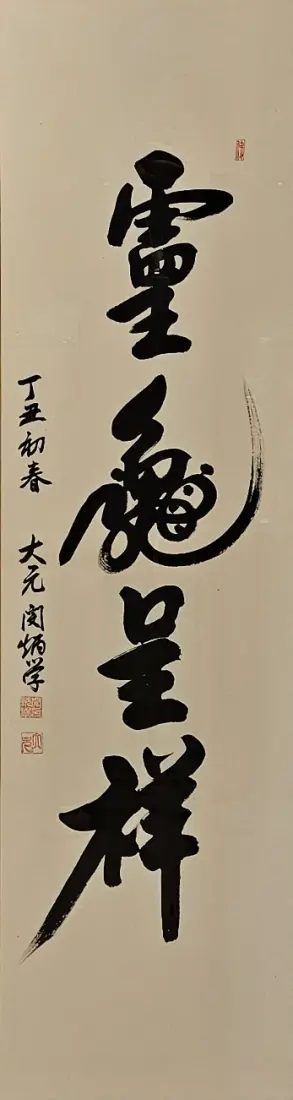 靈龜呈祥
丁丑初春 大元 閔炳学